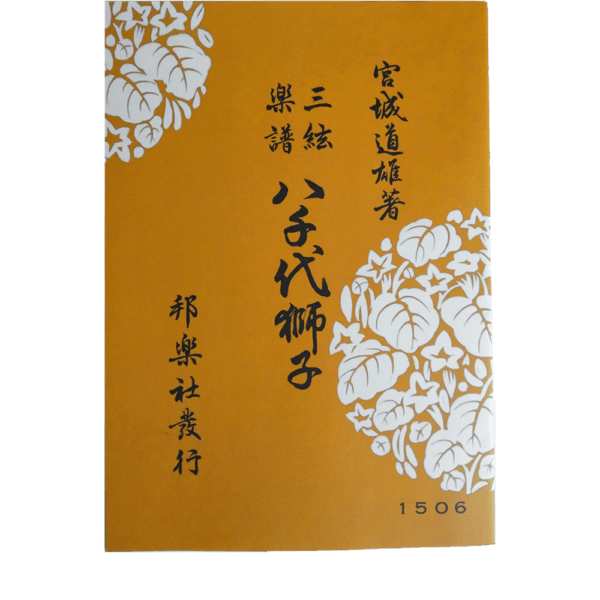 宮城道雄著
三絃
楽譜
八千代獅子
邦樂社發行
1506